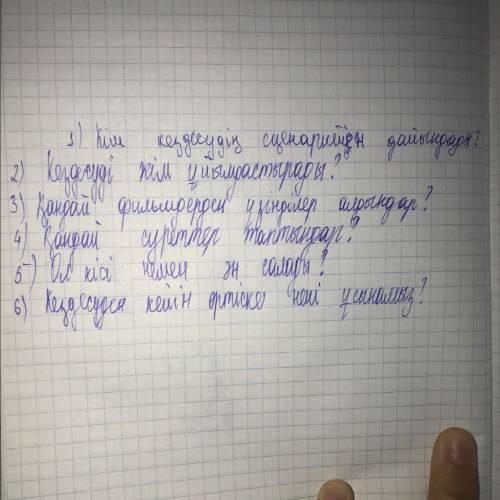 1) Кім кездесудің сценарийін дайындады?
2) Кездесуді кім ұйымдастырады?
3) Қандай фильмдерден үзінділер алдыңдар?
4) Қандай суреттер таптыңдар?
5) Ол кісі кімен ән салады?
6) Кездесуден кейін әртіске нені ұсынамыз?